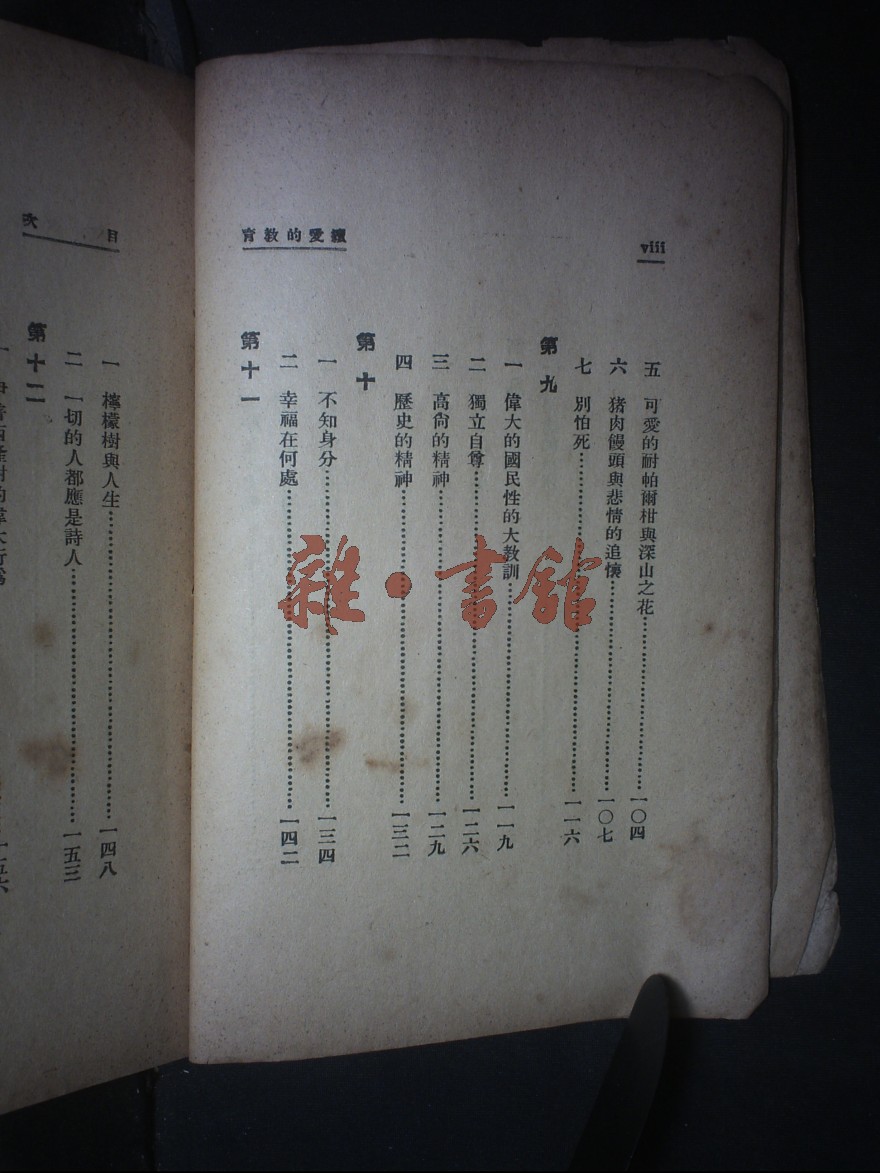 viii
續愛的教育
五 可愛的耐帕爾柑與深山之花……一〇四
六 猪肉饅頭與悲情的追懷……一〇七
七 別怕死……一一六
第九
一 偉大的國民性的大教訓……一一九
二 獨立自尊……一二六
三 高尙的精神……一二九
四 歷史的精神……一三二
第十
一 不知身分……一三四
二 幸福在何處……一四二
第十一
目次
一 檸檬樹與人生……一四八
二 一切的人都應是詩人……一五三
第十二
雜·書館